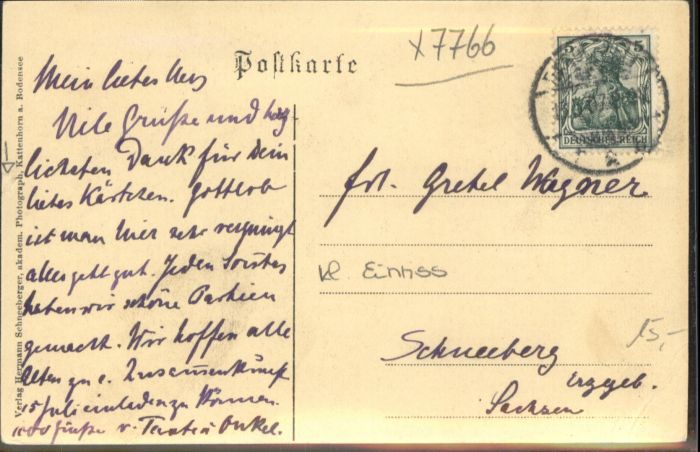 Postkarte
x7766
5 5
DEUTSCHES REICH
Verlag Hermann Schneeberger, akadem. Photograph, Kattenhorn a. Bodensee
Mein liebes
Viele Grüße und herz-
lichsten Dank für Dein
liebes Kärtchen. Gottlob
ist man hier sehr vergnügt
alles geht gut. Jeden
haben wir schöne Partien
gemacht. Wir hoffen alle
zu e. Zusammenkunft
25 Juli einladen zu können.
1000 Grüße v. Tante u Onkel.
Frl. Gretel Wagner
kl. Einriss
15,-
Schneeberg
Erzgeb.
Sachsen